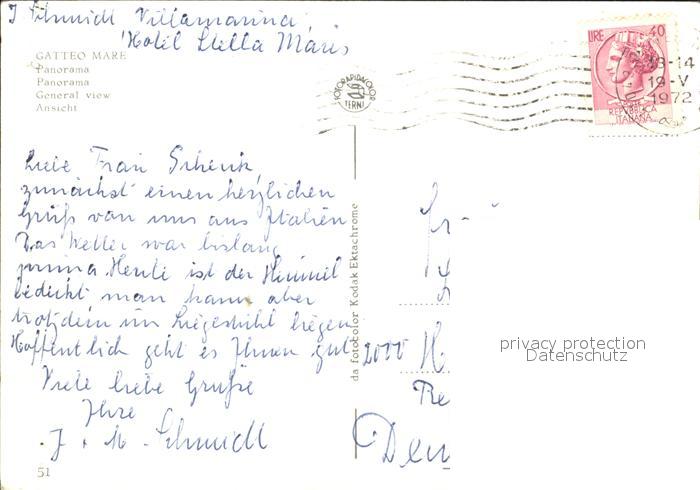 J Schmidt Villamarina
Hotel Stella Maris
GATTEO MARE
Panorama
Panorama
General view
Ansicht
FOTORAPIDACOLOR
TERNI
LIRE 40
13-14
19-V
1972
REPVBBLICA
ITALIANA
Liebe Frau Schenk,
zunächst einen herzlichen
Gruß von uns aus Italien
Das Wetter war bislang
prima Heute ist der Himmel
bedeckt man kann aber
trotzdem im Liegestuhl liegen
Hoffentlich geht es Ihnen gut
Viele liebe Grüße
Ihre
J. + M. Schmidt
51
da fotocolor Kodak Ektachrome
Fr
2000 H.
Deu
privacy protection
Datenschutz